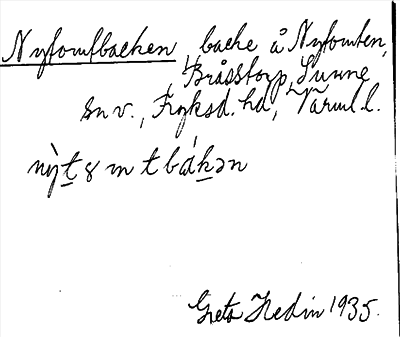 Nytomtbacken, backe å Nytomten,
Bråsstorp, Sunne
sn v., Fryksd. hd, Värml.
nỳt8mtbákən
Greta Hedin 1935.